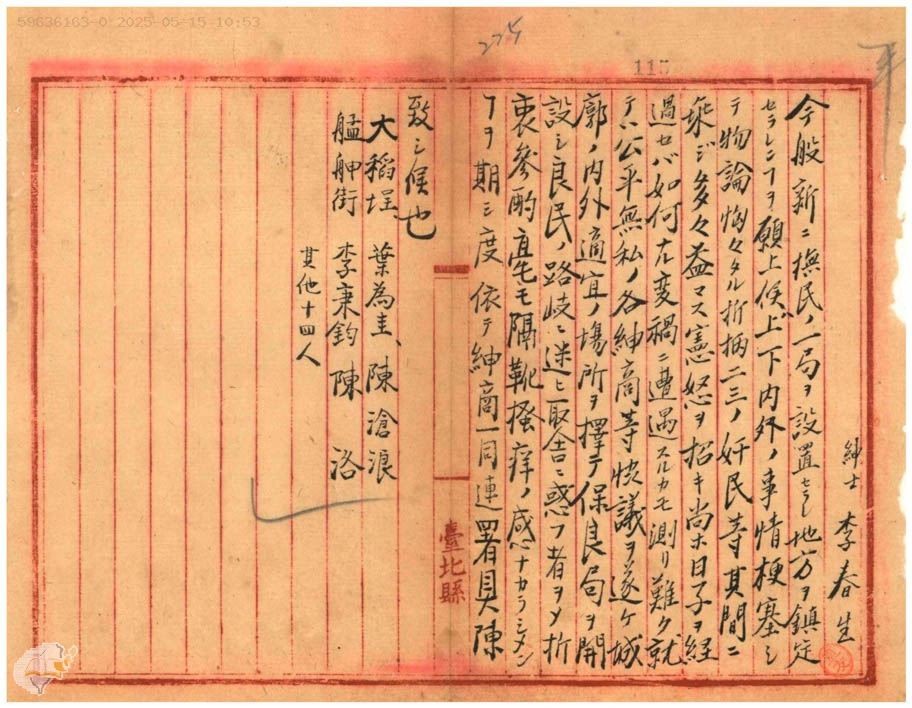 59636163-0 2025-05-15 10:53
275
115
紳士 李春生
今般新ニ撫民ノ一局ヲ設置セラレ地方ヲ鎮定
セラレンコヲ願上候上下内外ノ事情梗塞シ
テ物論恟々タル折柄二三ノ奸民等其間ニ
乗ジ多々益マス憲怒ヲ招キ尚ホ日子ヲ経
過セバ如何ナル変禍ニ遭遇スルカモ測リ難ク就
テハ公平無私ノ各紳商等快議ヲ遂ケ城
廓ノ内外適宜ノ場所ヲ擇テ保良局ヲ開
設シ良民ノ路岐ニ迷ヒ取舎ニ惑フ者ヲメ折
衷參酌毫モ隔靴掻痒ノ感ナカラシメン
コヲ期シ度依テ紳商一同連署具陳
致シ候也
大稻埕、葉為圭、陳滄浪
艋舺街 李秉鈞 陳洛
其他十四人
臺北縣